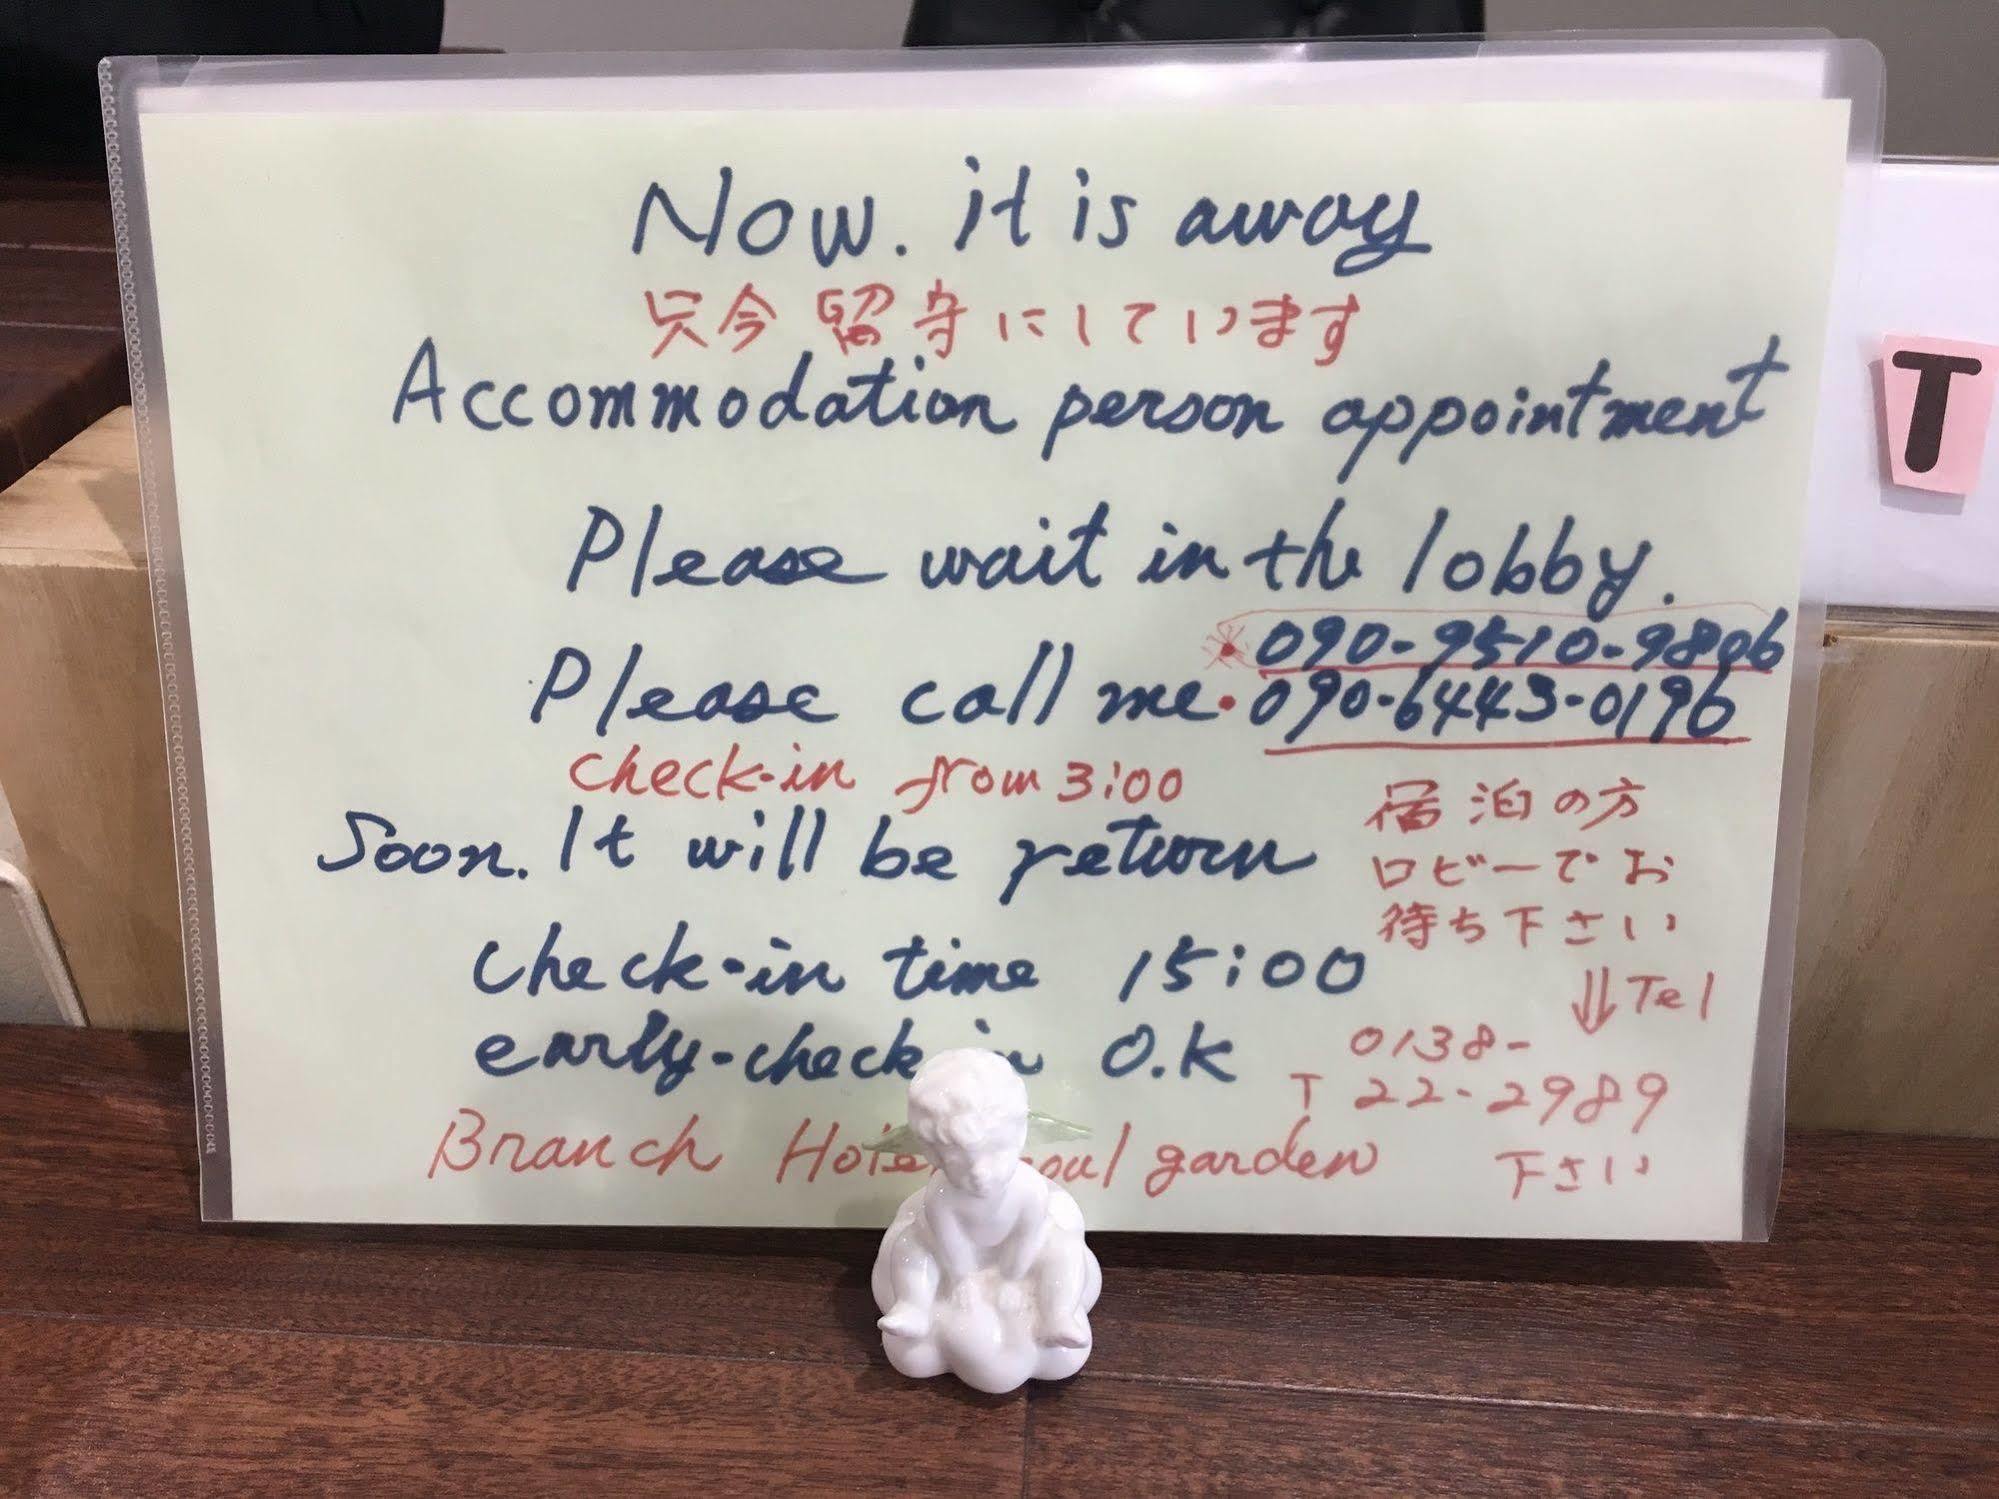 Now. it is away
只今留守にしています
T
Accommodation person appointment
Please wait in the lobby.
090-9510-9806
Please call me・090-6443-0196
check-in from 3:00
宿泊の方
ロビーでお
待ち下さい
Soon. It will be return
check-in time 15:00
⇓Tel
early-check in O.K
0138-
T 22-2989
下さい
Branch Hotel garden